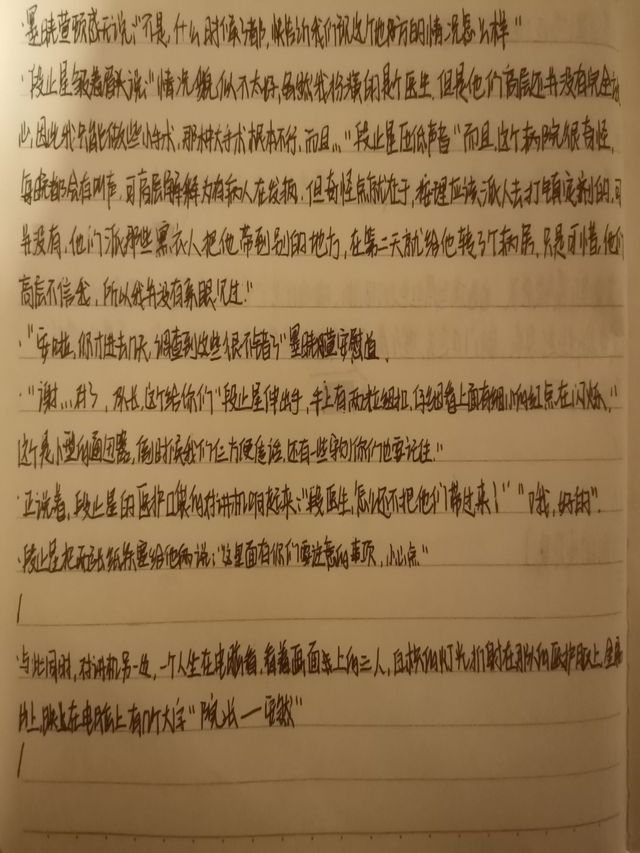 墨晓萱顿感无语："不是，什么时候了都，快告诉我们说这个地方的情况怎么样"
段止星皱着眉头说："情况貌似不太好，虽然我扮演的是个医生，但是他们高层还并没有完全
心，因此我只能做些小手术，那种大手术根本不行，而且…"段止星压低声音"而且，这个病院很奇怪，
每晚都会有叫声，可高层解释为有病人在发病，但奇怪点就在于，按理应该派人去打镇定剂的，可
并没有，他们派那些黑衣人把他带到别的地方，在第二天就给他转了个病房，只是可惜，他们
高层不信我，所以我并没有亲眼见过."
"安啦，你才进去几天，调查到这些很不错了"墨晓萱安慰道.
"谢…对了，队长，这个给你们"段止星伸出手，手上有两粒纽扣，仔细看上面有细小的红点在闪烁，"
这个是小型的通讯器，到时候我们仨方便通话，还有一些守则你们也要记住."
正说着，段止星的医护口袋的对讲机响起来："段医生，怎么还不把他们带过来？""哦，好的".
段止星把两张纸条塞给他俩说："这里面有你们要注意的事项，小心点"
与此同时，对讲机另一边，一个人坐在电脑看着画面上的三人，白炽的灯光打射在那人的医护服上，
上，在电脑上有几个大字"院长一